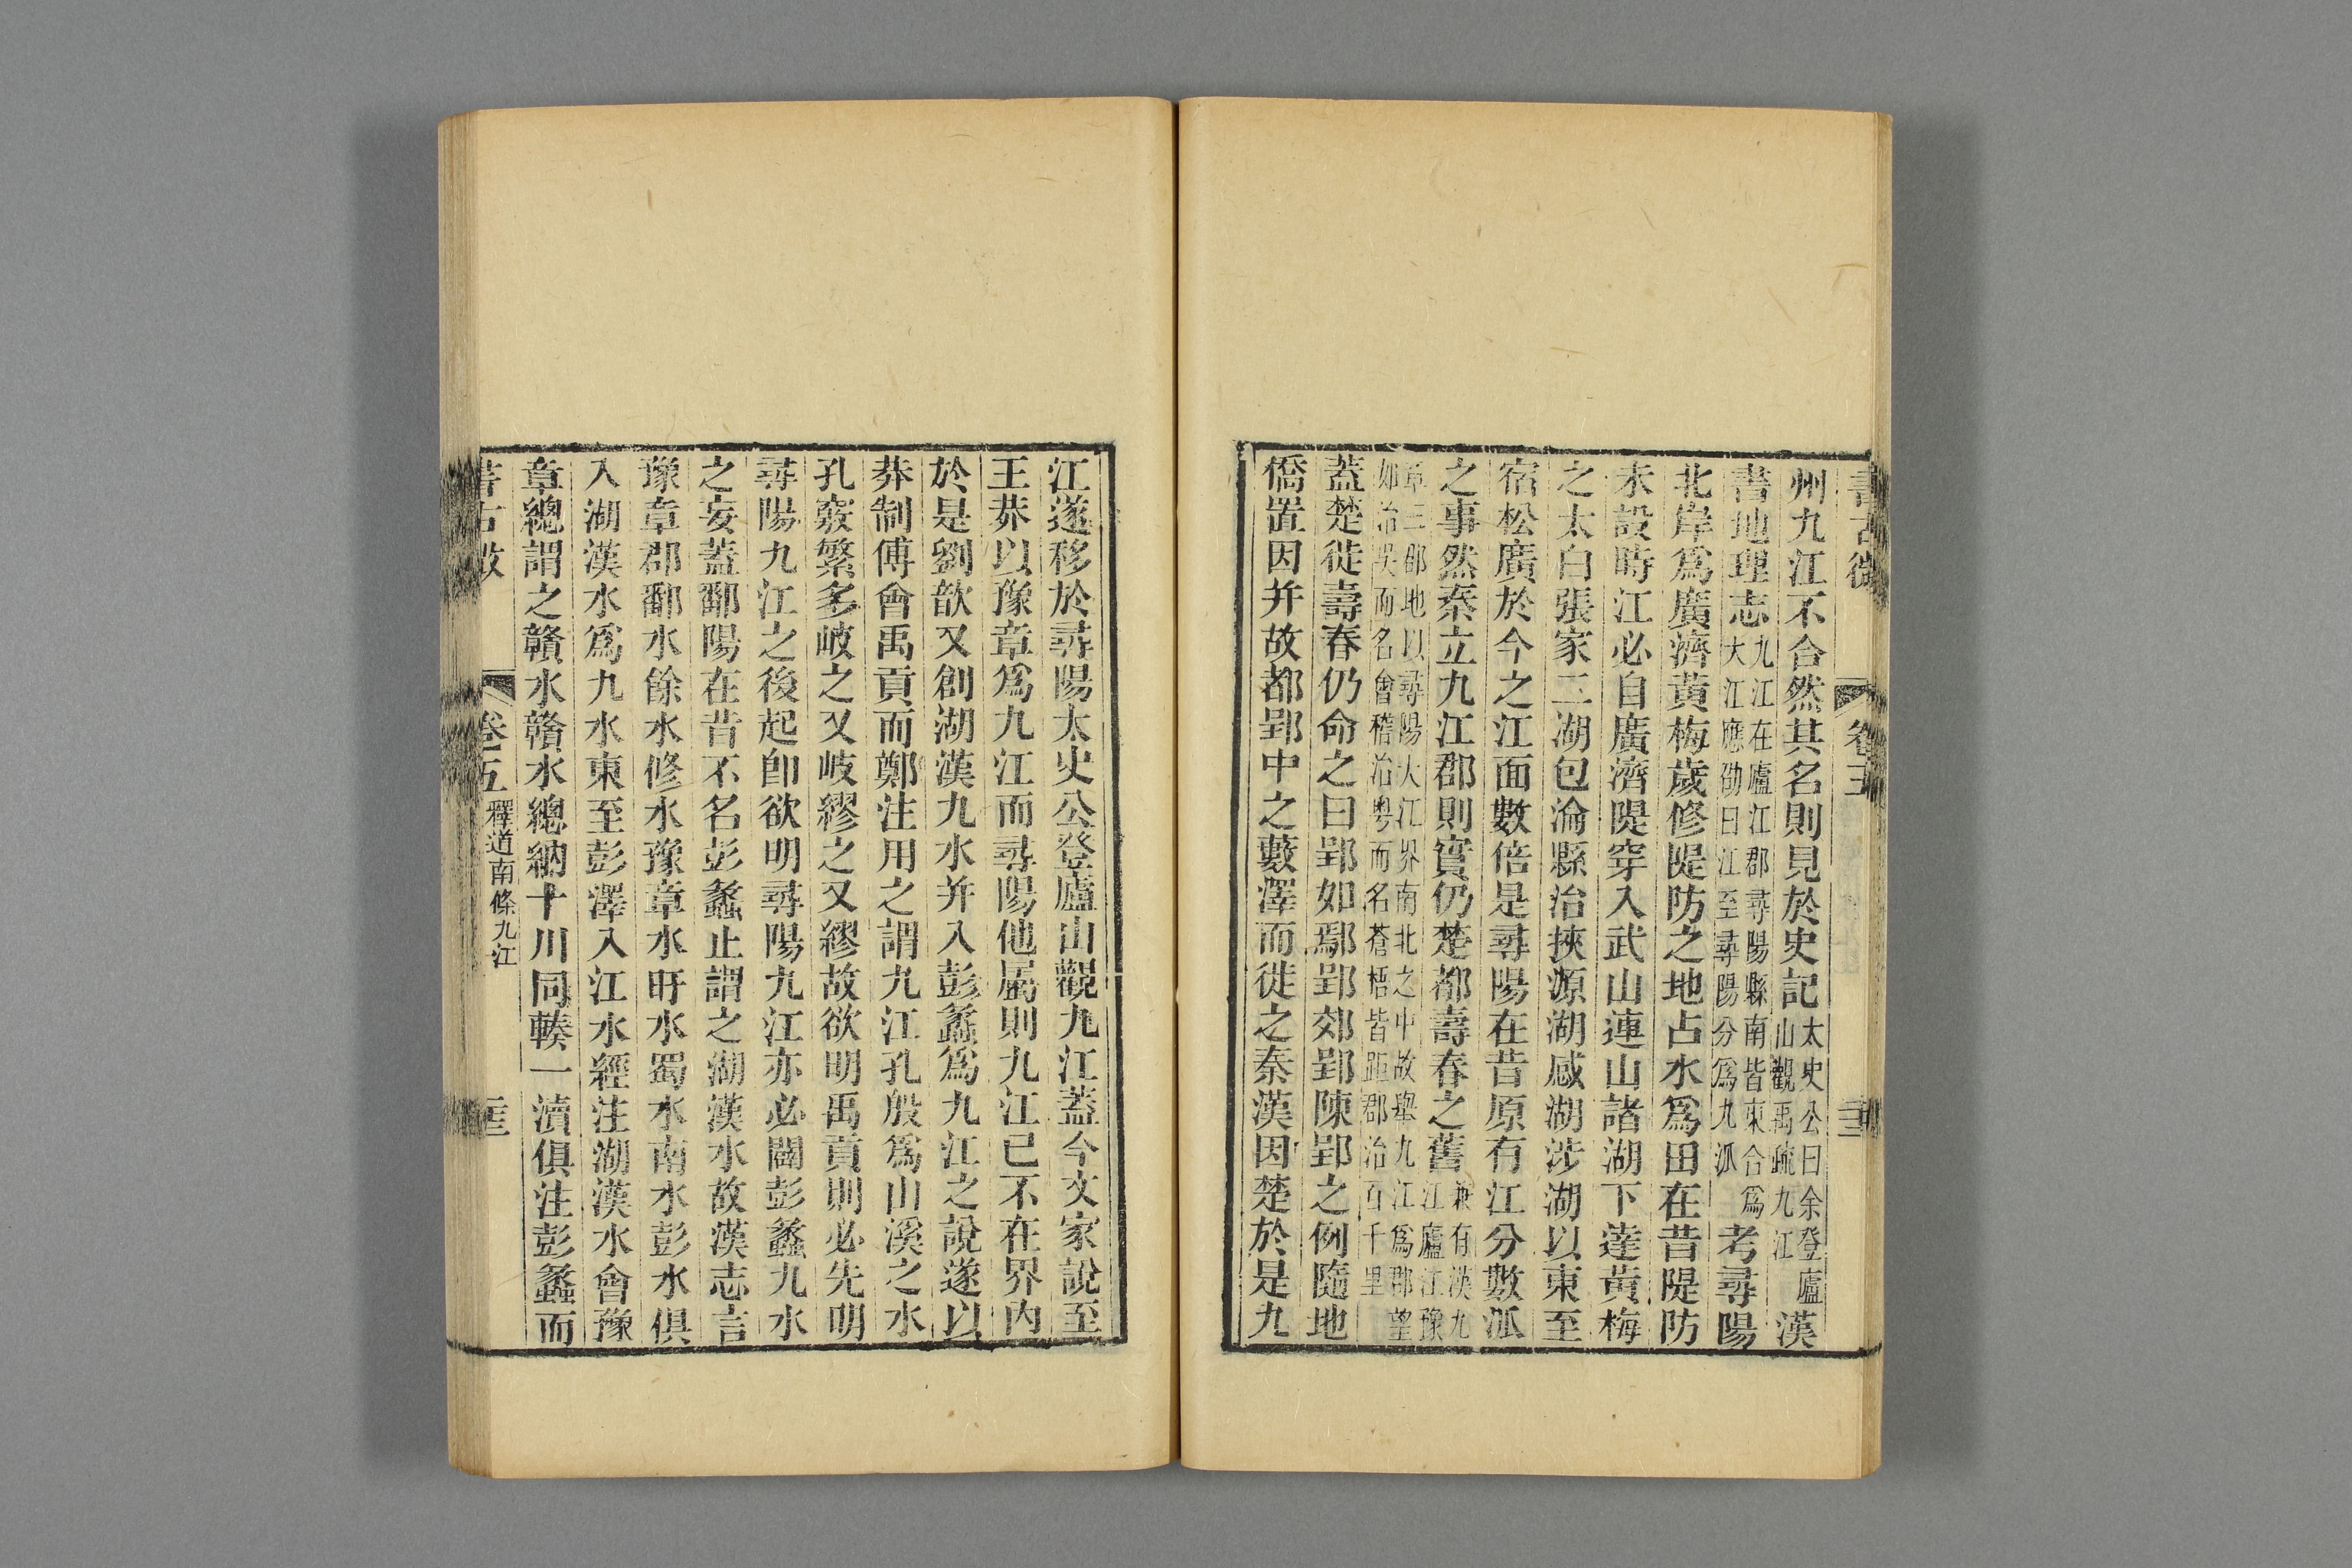 書古微 卷五
州九江不合然其名則見於史記太史公曰余登廬山觀禹疏九江漢
書地理志九江在廬江郡尋陽縣南皆東合為大江應劭曰江至尋陽分為九派考尋陽
北岸爲廣濟黃梅歲修隄防之地占水爲田在昔隄防
未設時江必自廣濟隄穿入武山連山諸湖下達黃梅
之太白張家二湖包淪縣治挾源湖感湖涉湖以東至
宿松廣於今之江面數倍是尋陽在昔原有江分數派
之事然秦立九江郡則實仍楚都壽春之舊兼有漢九江廬江豫
章三郡地以尋陽大江界南北之中故舉九江爲郡望如治吳而名會稽治粵而名蒼梧皆距郡治百千里
蓋楚徙壽春仍命之曰郢如鄢郢郊郢陳郢之例隨地
僑置因并故都郢中之藪澤而徙之秦漢因楚於是九
江遂移於尋陽太史公登廬山觀九江蓋今文家說至
王莽以豫章爲九江而尋陽他屬則九江已不在界內
於是劉歆又創湖漢九水并入彭蠡爲九江之說遂以
莽制傅會禹貢而鄭注用之謂九江孔殷爲山溪之水
孔竅繁多岐之又岐繆之又繆故欲明禹貢則必先明
尋陽九江之後起卽欲明尋陽九江亦必闢彭蠡九水
之妄蓋鄱陽在昔不名彭蠡止謂之湖漢水故漢志言
豫章郡鄱水餘水修水豫章水盱水蜀水南水彭水俱
入湖漢水爲九水東至彭澤入江水經注湖漢水會豫
章總謂之贛水贛水總納十川同輳一瀆俱注彭蠡而
卷五 釋道南條九江